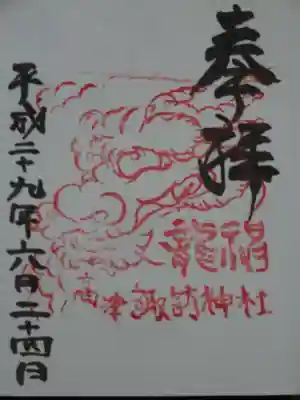 奉拝
龍神
高津諏訪神社
平成二十九年六月二十四日